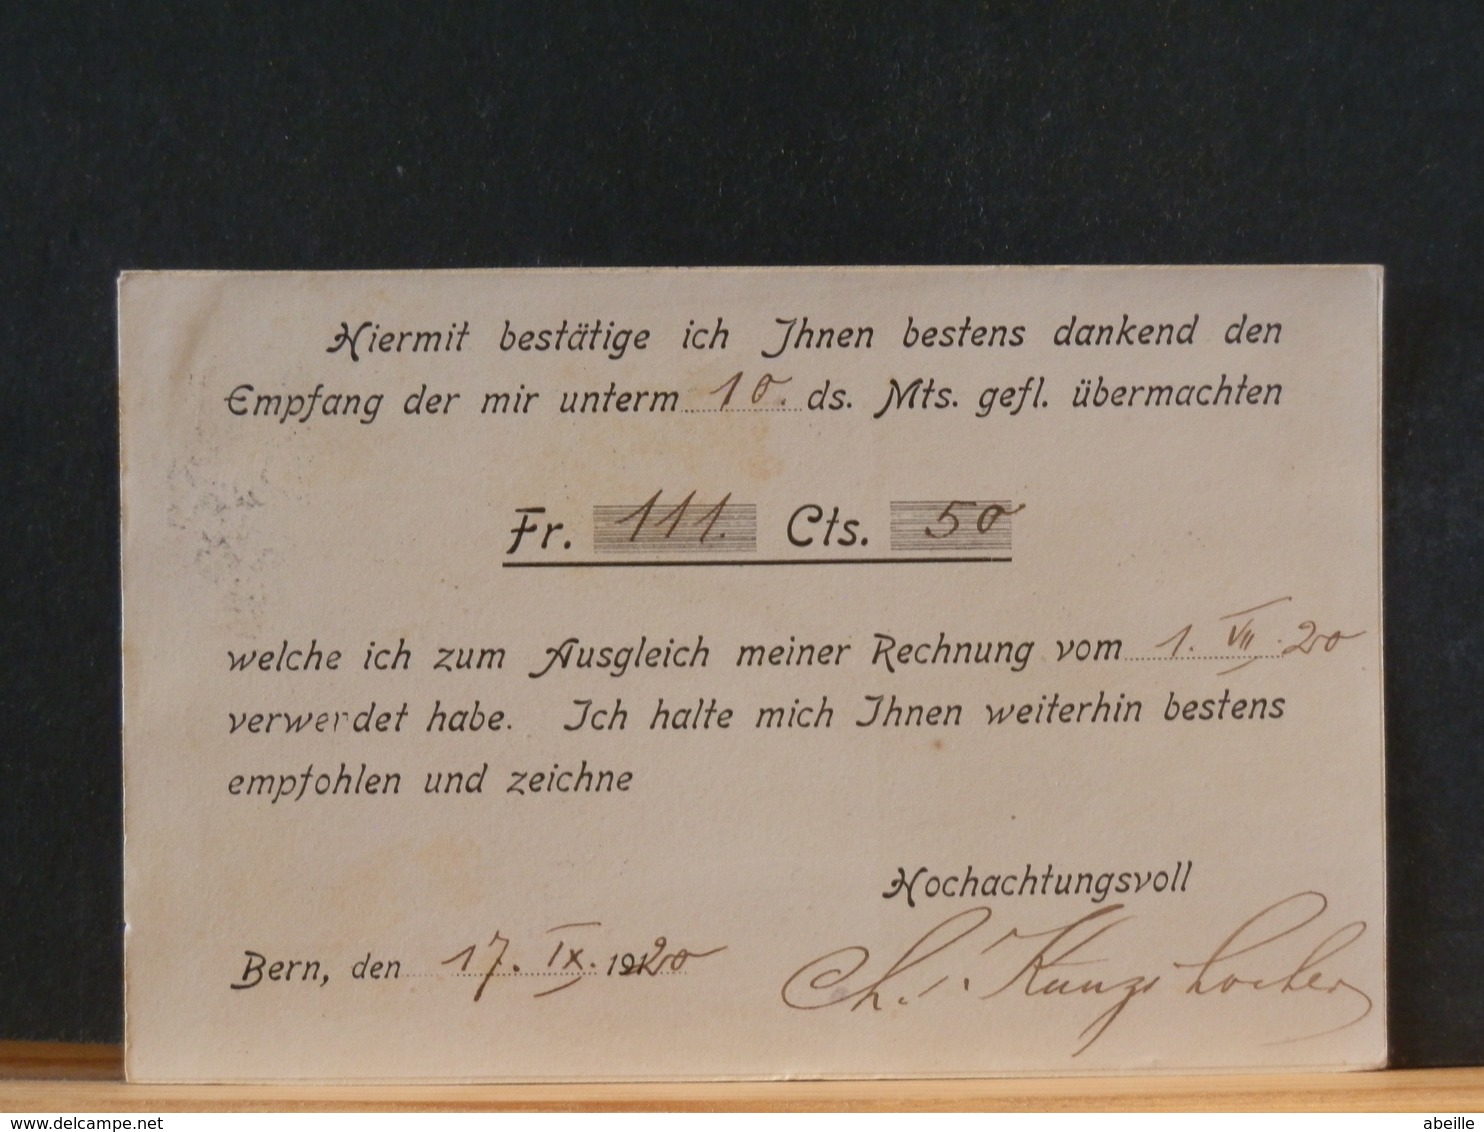 Hiermit bestätige ich Ihnen bestens dankend den
Empfang der mir unterm 10. ds. Mts. gefl. übermachten
Fr. 111. Cts. 50
welche ich zum Ausgleich meiner Rechnung vom 1. VII. 20
verwendet habe. Ich halte mich Ihnen weiterhin bestens
empfohlen und zeichne
Hochachtungsvoll
Bern, den 17. IX. 1920
Ch. Künzi Locher
www.delcampe.net
abeille